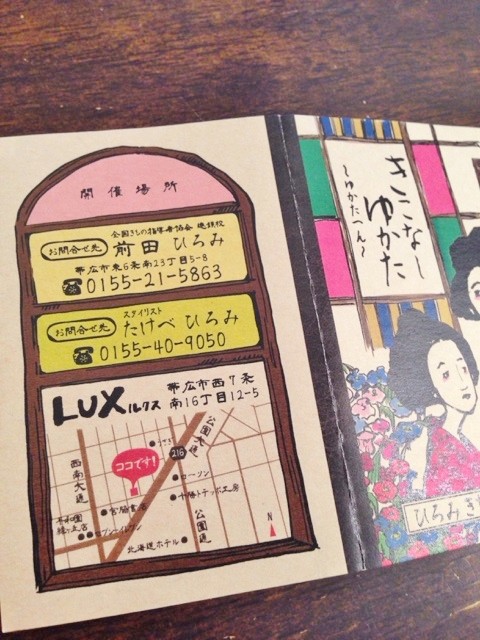 開催場所
全国きもの指導者協会 連鎖校
お問合せ先
前田 ひろみ
帯広市東6条南23丁目5-8
0155-21-5863
スタイリスト
お問合せ先
たけべ ひろみ
0155-40-9050
LUX ルクス
帯広市西7条
南16丁目12-5
公園大通
うさぎ
216
ココです!
西南大通
ローソン
十勝テッポ工房
宮脇書店
セブンイレブン
公園通
北海道ホテル
N
きこなし
ゆかた
~ゆかたへん~
ひろみ